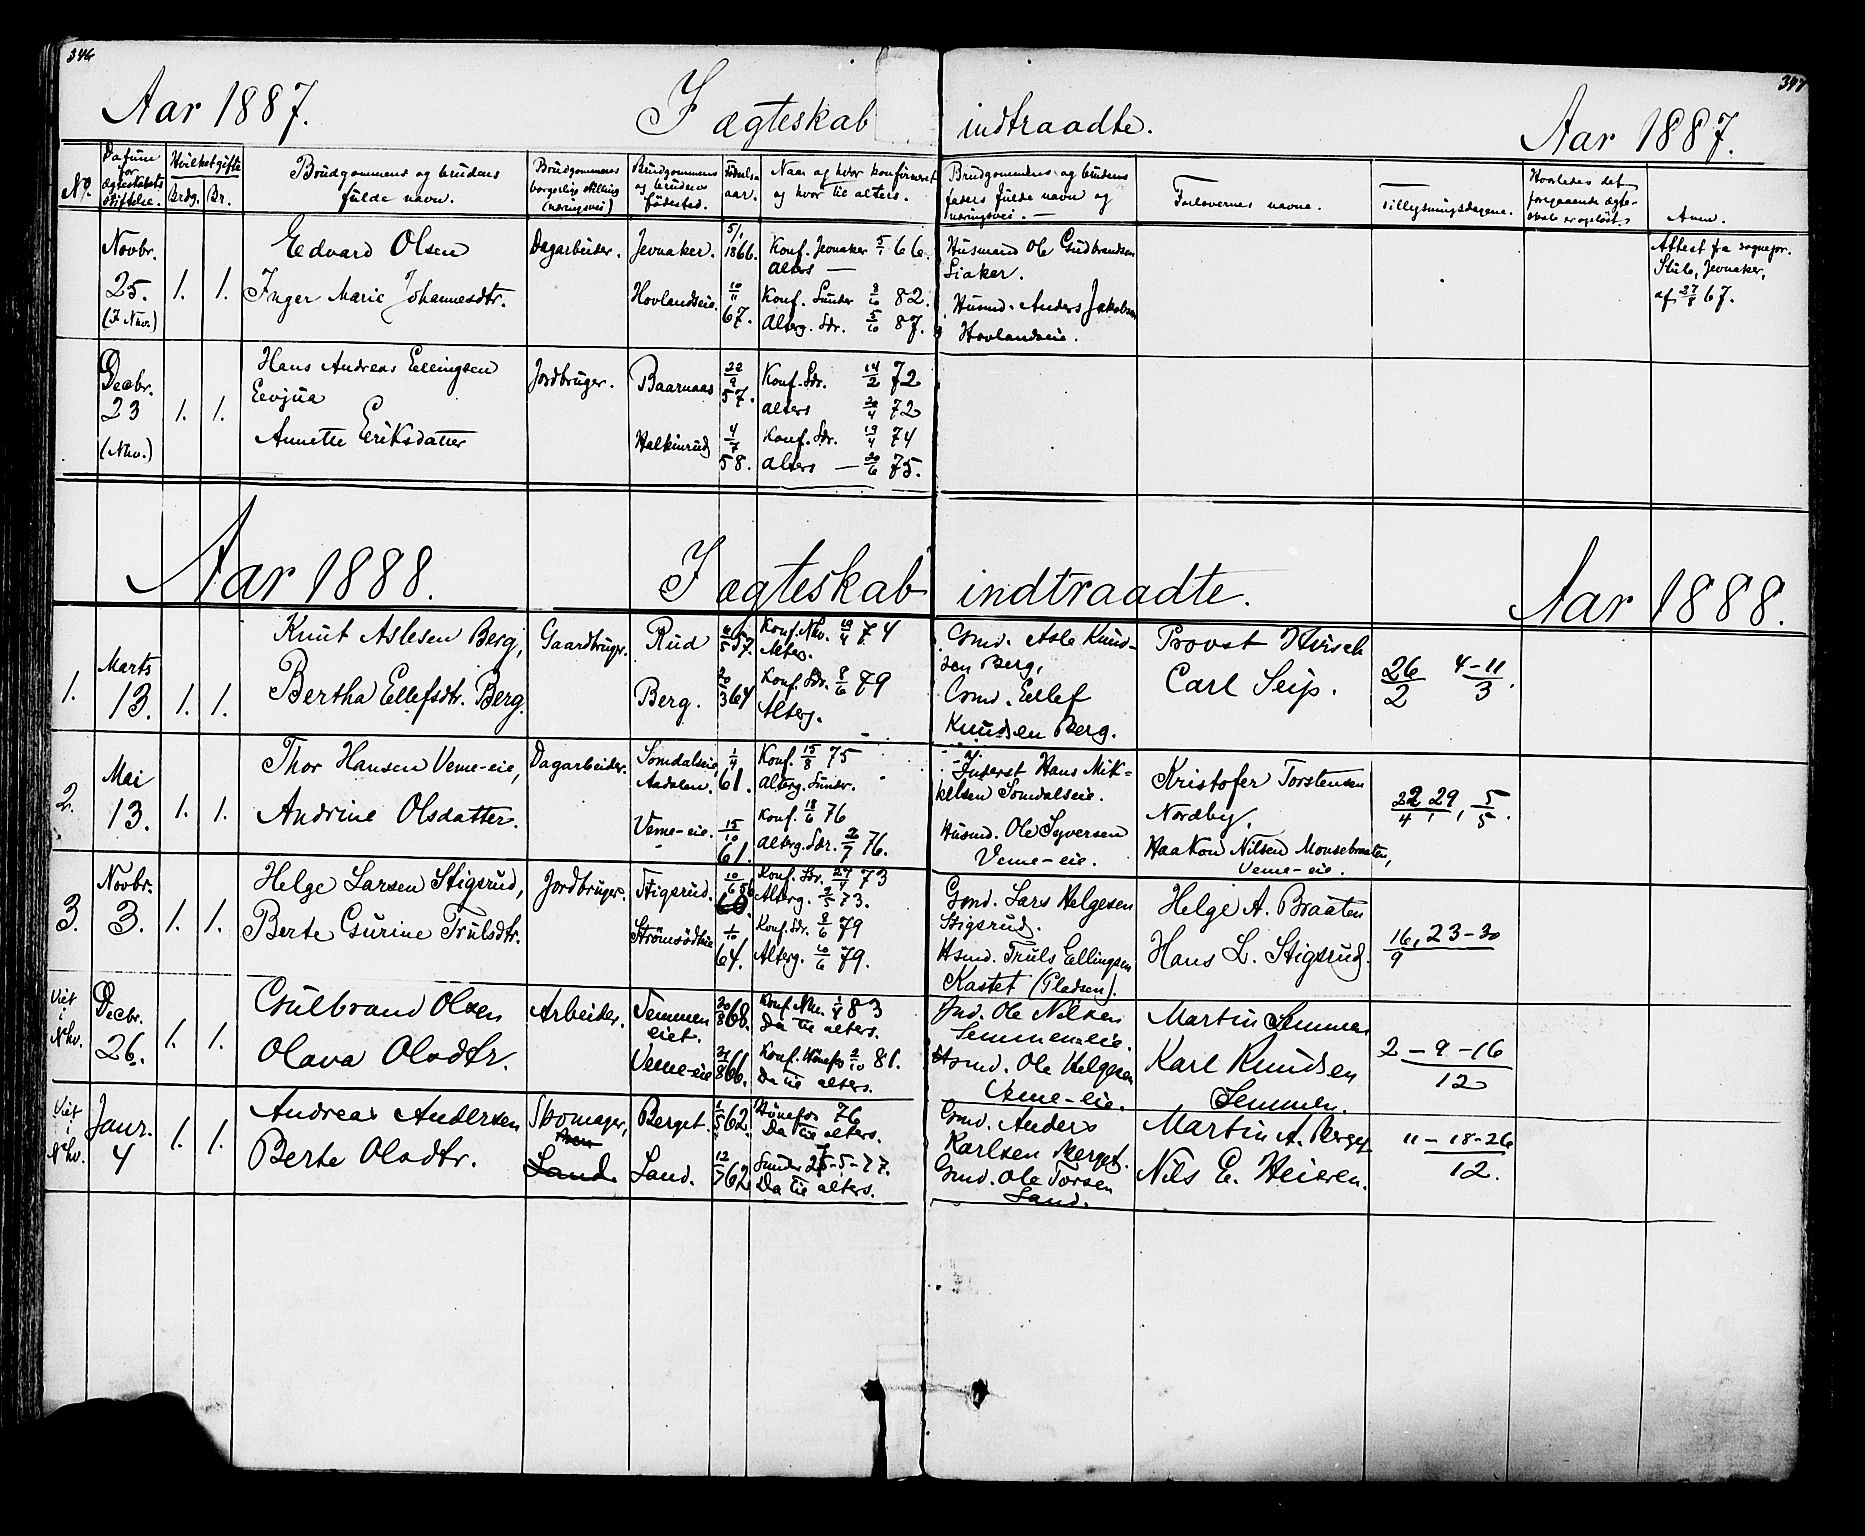 346
347
Aar 1887.
I ægteskab indtraadte.
Aar 1887.
No.
Datum for ægteskabets stiftelse.
Hvilket gifte
Brdg. Br.
Brudgommens og brudens fulde navn.
Brudgommens borgerlig stilling (næringsvei)
Brudgommens og brudens fødested.
Fødsels-aar.
Naar og hvor konfirmeret og hvor til alters.
Brudgommens og brudens faders fulde navn og næringsvei.
Forlovernes navne.
Tillysningsdagene.
Hvorledes det foregaaende ægteskab er opløst.
Anm.
Novbr. 25. (I Nhv.)
1. 1.
Edvard Olsen
Inger Marie Johannesdtr.
Dagarbeider.
Jevnaker.
Hovlandseie.
5/1 1866.
10/11 67.
Konf. Jevnaker 5/1 66.
Alters —
Konf. Lunder 8/10 82.
Alterg. Ldr. 5/10 87.
Husmand Ole Gudbrandsen
Liaker.
Husmd. Anders Jakobsen
Hovlandseie.
Attest fra sognepr.
Stub, Jevnaker,
af 27/8 67.
Decbr. 23 (Nhv.)
1. 1.
Hans Andreas Ellingsen
Evjua
Annette Eriksdatter
Jordbruger.
Baarnaas
Halkinrud
22/9 57.
4/7 58.
Konf. Ldr. 14/2 72
Alters 20/4 72
Konf. Ldr. 19/4 74
Alters — 20/6 75.
Aar 1888.
I ægteskab indtraadte.
Aar 1888.
1.
Marts 13.
1. 1.
Knut Aslesen Berg,
Bertha Ellefsdtr. Berg.
Gaardbruger.
Rud
Berg.
57.
20/3 64
Konf. Nhv. 19/4 74
Alterg.
Konf. Ldr. 8/6 79
Alterg.
Gmd. Asle Knud-
sen Berg,
Gmd. Ellef
Knudsen Berg.
Provst Hirsch
Carl Seip.
26/2 4-11/3.
2.
Mai 13.
1. 1.
Thor Hansen Veme-eie,
Andrine Olsdatter.
Dagarbeider.
Somdalseie
Aadalen.
Veme-eie.
1/4 61.
15/10 61.
Konf. 15/8 75
Alterg. Lunder.
Konf. 18/6 76
Alterg. Ldr. 2/7 76.
Inderst Hans Mik-
kelsen Somdalseie.
Husmd. Ole Syversen
Veme-eie.
Kristofer Torstensen
Nordby,
Haakon Nilsen Mousebraaten,
Veme-eie.
22 29/4, 5/5.
3.
Novbr. 3.
1. 1.
Helge Larsen Stigsrud,
Berte Gurine Trulsdtr.
Jordbruger.
Stigsrud.
Strømsødteie
10/6 56
1/10 64.
Konf. Ldr. 27/4 73
Alterg. 2/5 73.
Konf. Ldr. 8/6 79
Alterg. 10/6 79.
Gmd. Lars Helgesen
Stigsrud.
Hsmd. Truls Ellingsen
Kastet (Pladsen).
Helge A. Braaten
Hans L. Stigsrud.
16, 23-30/9
Viet i Nhv.
Decbr. 26.
1. 1.
Gulbrand Olsen
Olava Olsdtr.
Arbeider.
Semmen
eiet.
Veme-eie
20/8 68.
21/8 66.
Konf. Nhv. 1/4 83
Da til alters.
Konf. Hønefos 2/10 81.
Da til alters.
Ind. Ole Nilsen
Semmeneie.
Hsmd. Ole Helgesen
Veme-eie.
Martin Semmen
Karl Knudsen
Semmen.
2-9-16/12
Viet i Nhv.
Janr. 4
1. 1.
Andreas Andersen
Berte Olsdtr.
Skomager,
Land.
Berget.
Land.
1/5 62.
12/7 62
Hønefos 76
Da til alters.
Lunder 25-5-77.
Da til alters.
Gmd. Anders
Karlsen Berget.
Gmd. Ole Torsen
Land.
Martin A. Berget
Nils E. Heieren.
11-18-26/12.